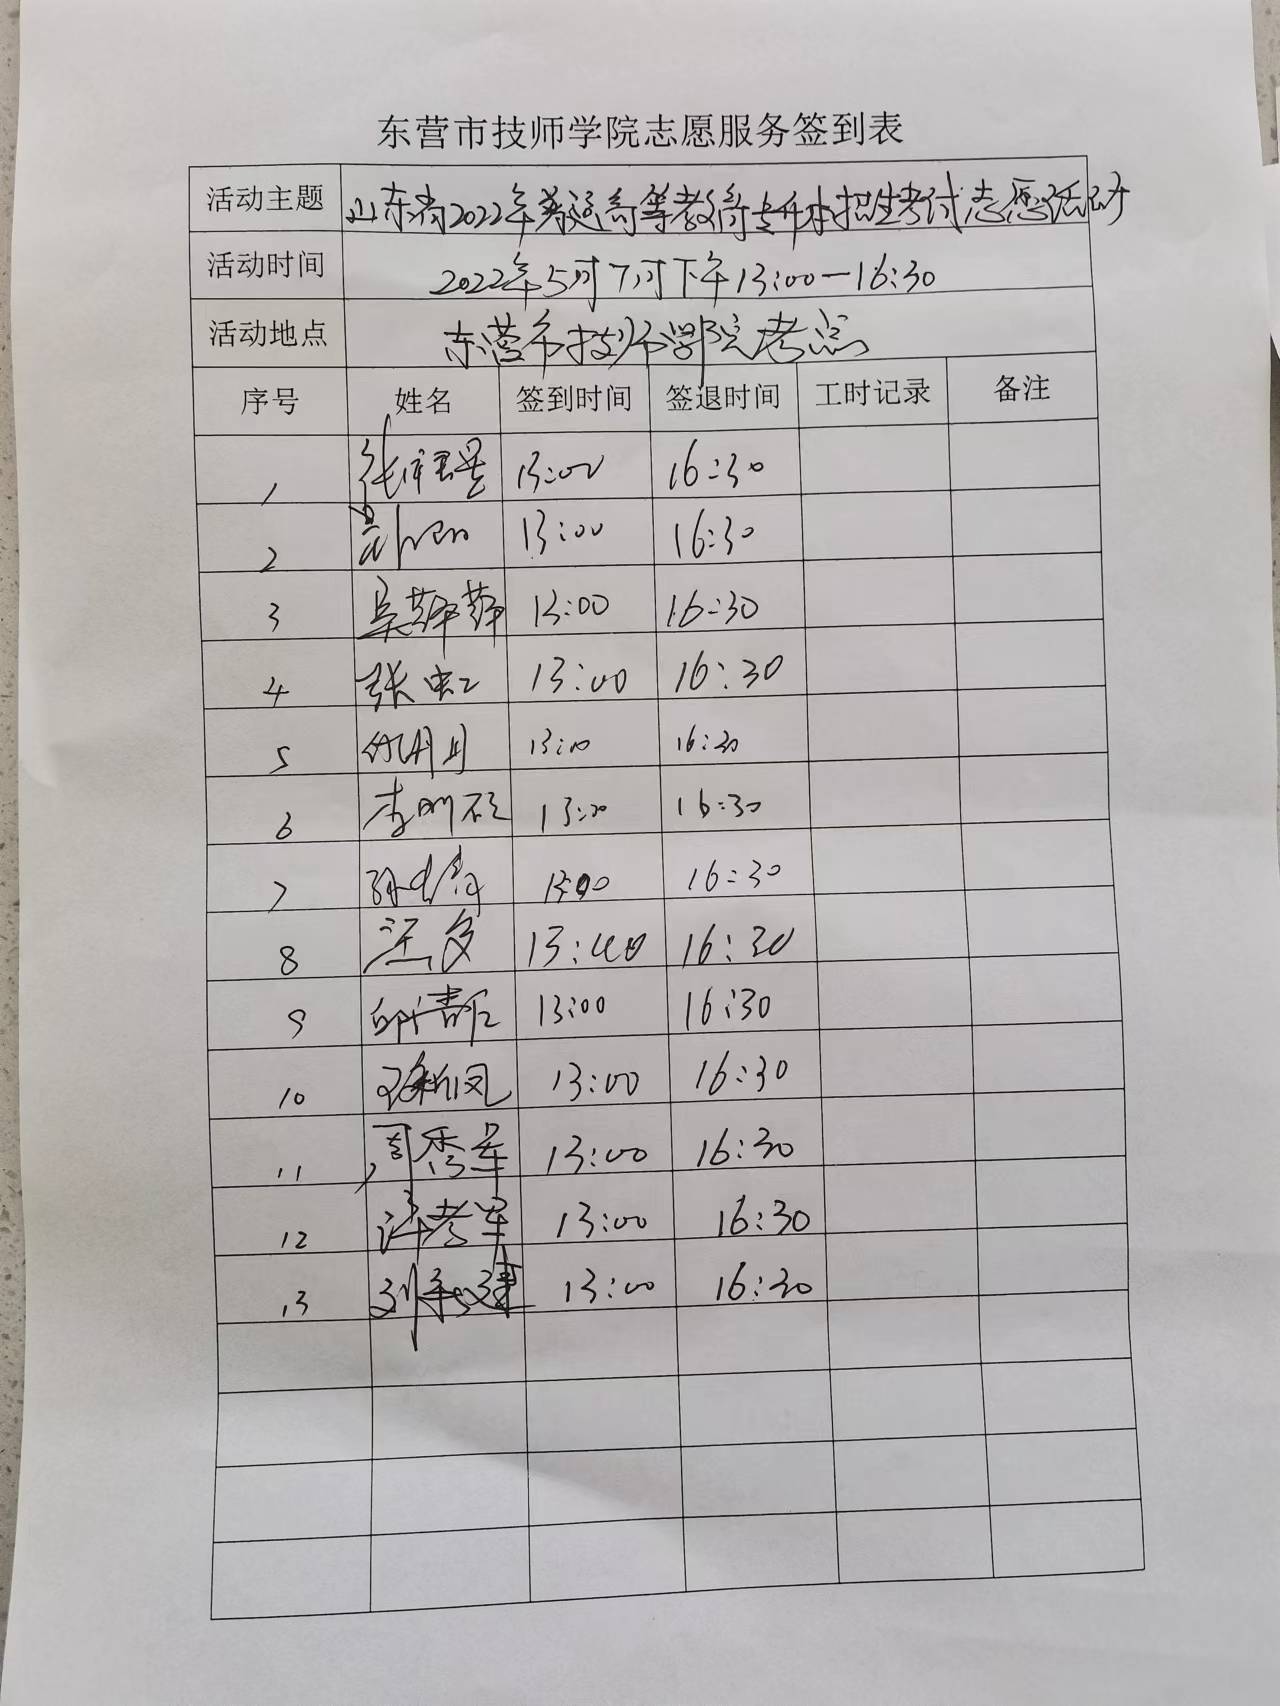 东营市技师学院志愿服务签到表
活动主题 山东省2022年普通高等教育专升本招生考试志愿活动
活动时间 2022年5月7日下午13:00—16:30
活动地点 东营市技师学院考点
序号 姓名 签到时间 签退时间 工时记录 备注
1 13:00 16:30
2 13:00 16:30
3 吴苹苹 13:00 16:30
4 张虹 13:00 16:30
5 13:00 16:30
6 李明 13:00 16:30
7 孙 13:00 16:30
8 汪 13:00 16:30
9 邱清 13:00 16:30
10 13:00 16:30
11 周秀军 13:00 16:30
12 许考军 13:00 16:30
13 刘 建 13:00 16:30